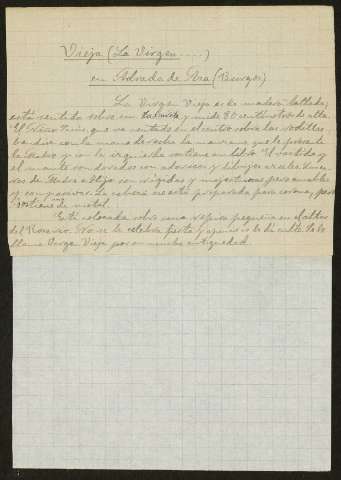 Vieja (La Virgen .....)
en Adrada de Aza (Burgos)
La Virgen Vieja es de madera tallada,
está sentada sobre un taburete y mide 80 centímetros de alta.
El Niño Jesús, que va sentado en el centro sobre las rodillas,
bendice con la mano derecha la manzana que le presenta
la Madre y con la izquierda sostiene un libro. El vestido y
el manto son dorados con adornos y dibujos orales. Los ros-
tros de Madre e Hijo son rígidos y majestuosos pero amables
y con pasivos. La cabeza no está preparada para corona, pero
sostiene una de metal.
Está colocada sobre una repisa pequeña en el altar
del Rosario. No se le celebra fiesta y apenas se le da culto. Se le
llama Virgen Vieja por su mucha antigüedad.